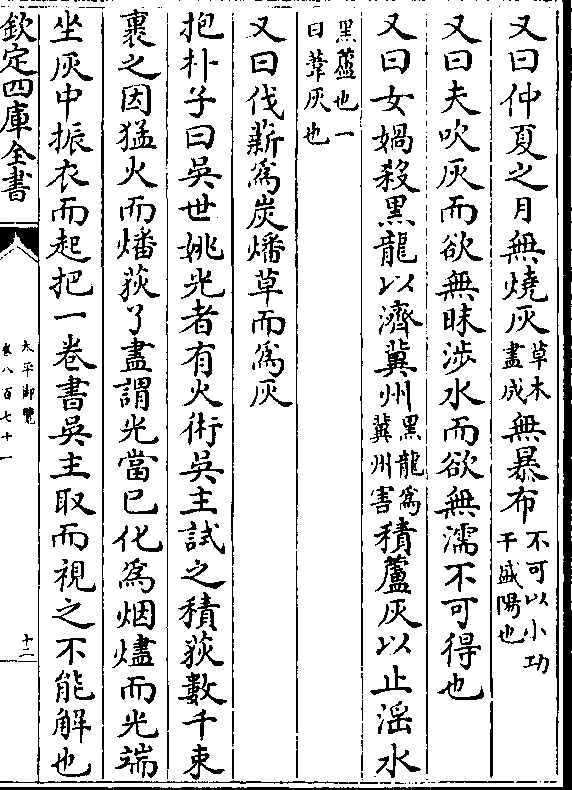 又曰仲夏之月無燒灰草木盡成無暴布不可以小功干盛陽也
又曰夫吹灰而欲無眯涉水而欲無濡不可得也
又曰女媧殺黑龍以濟冀州黑龍為冀州害積蘆灰以止滛水
黑蘆也一曰葦灰也
又曰伐薪為炭燔草而為灰
抱朴子曰吳世姚光者有火術吳主試之積荻數千束
裹之因猛火而燔荻了盡謂光當已化為烟燼而光端
坐灰中振衣而起把一卷書吳主取而視之不能解也
欽定四庫全書
太平御覽
卷八百七十一
十二